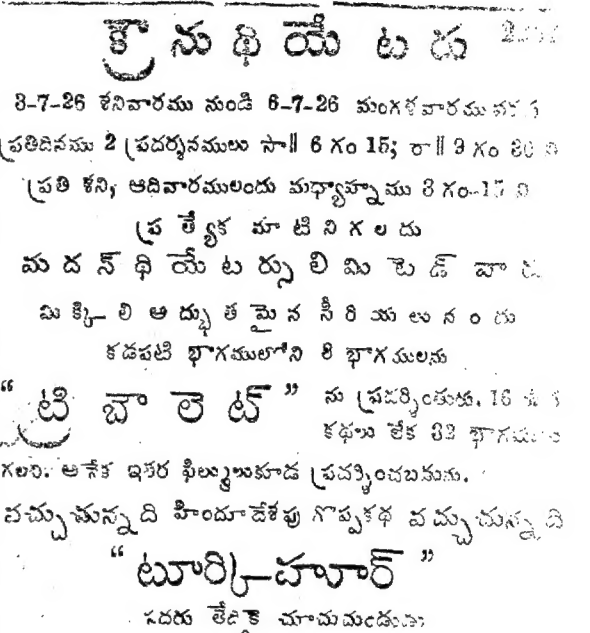 క్రౌను థియేటరు
3-7-26 శనివారము నుండి 6-7-26 మంగళవారము వరకు
ప్రతిదినము 2 ప్రదర్శనములు సా॥ 6 గం 15; రా॥ 9 గం 30 ని
ప్రతి శని, ఆదివారములందు మధ్యాహ్నము 3 గం-15 ని
ప్రత్యేక మాటినిగలదు
మదన్ థియేటర్సు లిమిటెడ్ వారు
మిక్కిలి అద్భుతమైన సీరియలునందు
కడపటి భాగములోని 8 భాగములను
“ట్రిబాలెట్” ను ప్రదర్శింతురు. 16
కథలు లేక 32 భాగములు
గలవి. అనేక ఇతర ఫిల్ములుకూడ ప్రదర్శించబడును.
వచ్చుచున్నది హిందూదేశపు గొప్పకథ వచ్చుచున్నది
“టూర్కి-హూర్”
సదరు తేదికై చూచుచుండుడు